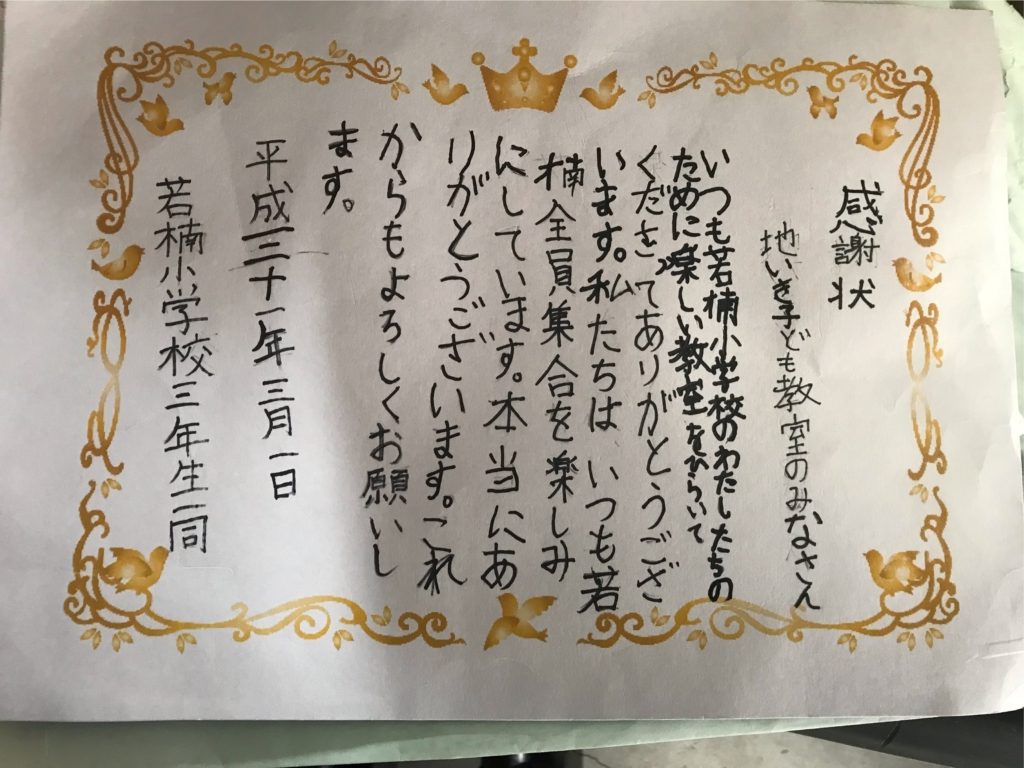 感謝状
地いき子ども教室のみなさん
いつも若楠小学校のわたしたちの
ために楽しい教室をひらいて
くださってありがとうござ
います。私たちは、いつも若
楠全員集合を楽しみ
にしています。本当にあ
りがとうございます。これ
からもよろしくお願いし
ます。
平成三十一年三月一日
若楠小学校三年生一同